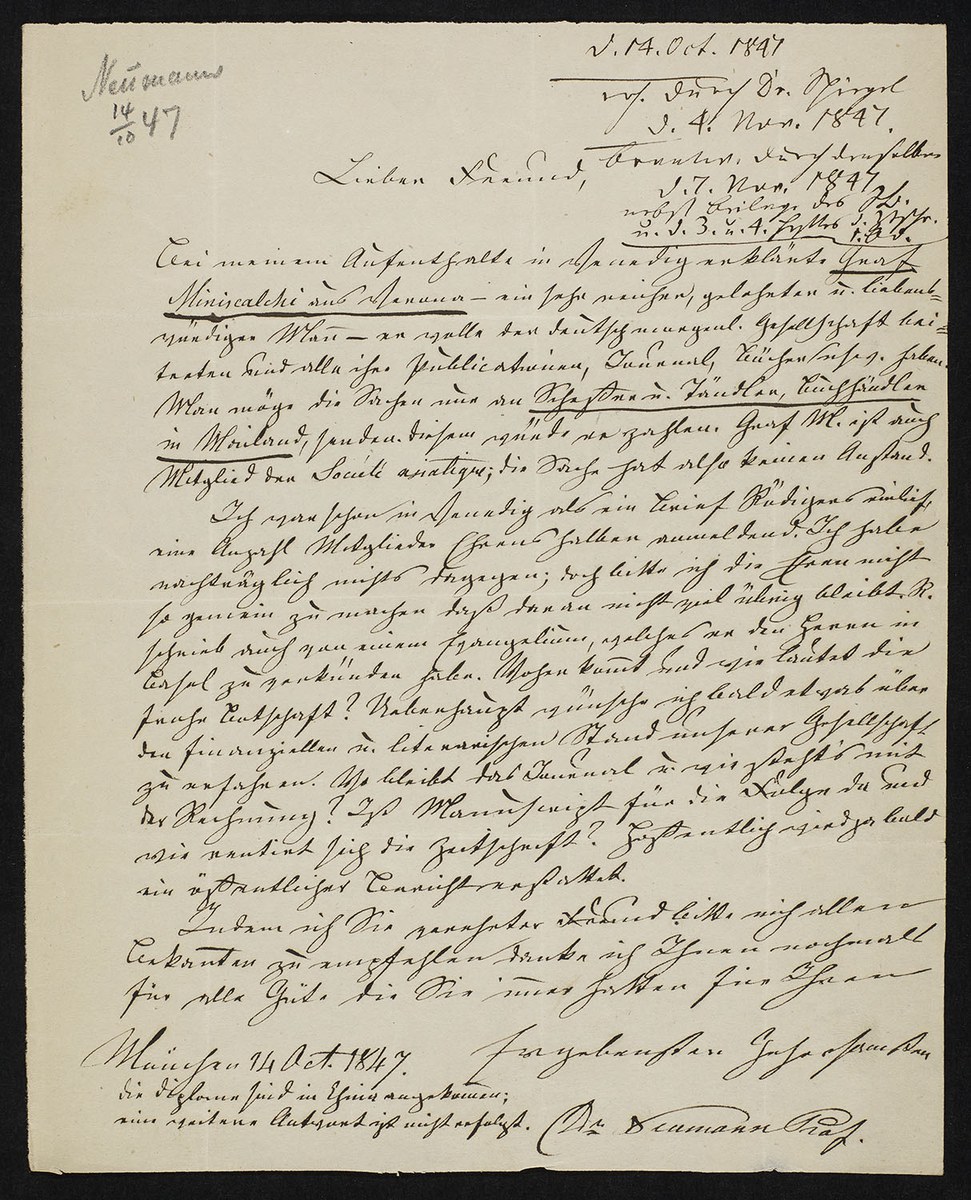 Neumann
14/10 47
d. 14. Oct. 1847
erh. durch Dr. Spiegel
d. 4. Nov. 1847.
beantw. durch denselben
d. 7. Nov. 1847
nebst Beilage des
u. d. 3. u. 4. Heftes d. Ztschr.
Lieber Freund,
Bei meinem Aufenthalte in Venedig erklärte Graf
Miniscalchi aus Verona – ein sehr reicher, gelehrter u. liebens-
würdiger Mann – er wolle der deutsch morgenl. Gesellschaft bei-
treten und alle ihre Publicationen, Journal, Bücher usw. haben.
Man möge die Sachen nur an Scheffer u. Tändler, Buchhändler
in Mailand, senden. diesem würde er zahlen. Graf M. ist auch
Mitglied der Société asiatique; die Sache hat also keinen Anstand.
Ich war schon in Venedig als ein Brief Rödigers einlief,
eine Anzahl Mitglieder Ehrens halber anmeldend. Ich habe
nachträglich nichts dagegen; doch bitte ich die Ehren nicht
so gemein zu machen daß daran nicht viel übrig bleibt. R.
schrieb auch von einem Evangelium, welches er den Herrn in
Basel zu verkünden habe. Woher kommt und wie lautet die
frohe Botschaft? Ueberhaupt wünsche ich bald etwas über
den finanziellen u. literarischen Stand unserer Gesellschaft
zu erfahren. Wo bleibt das Journal u. wie steht's mit
der Rechnung? Ist Manuscript für die Folge da und
wie rentirt sich die Zeitschrift? Hoffentlich wird ja bald
ein öffentlicher Bericht erstattet.
Indem ich Sie verehrter Freund bitte mich allen
Bekannten zu empfehlen danke ich Ihnen nochmals
für alle Güte die Sie immer hatten für Ihren
Ergebensten Gehorsamsten
München 14 Oct. 1847.
die Diplome sind in China angekommen;
eine weitere Antwort ist nicht erfolgt.
Dr. Neumann Prof.